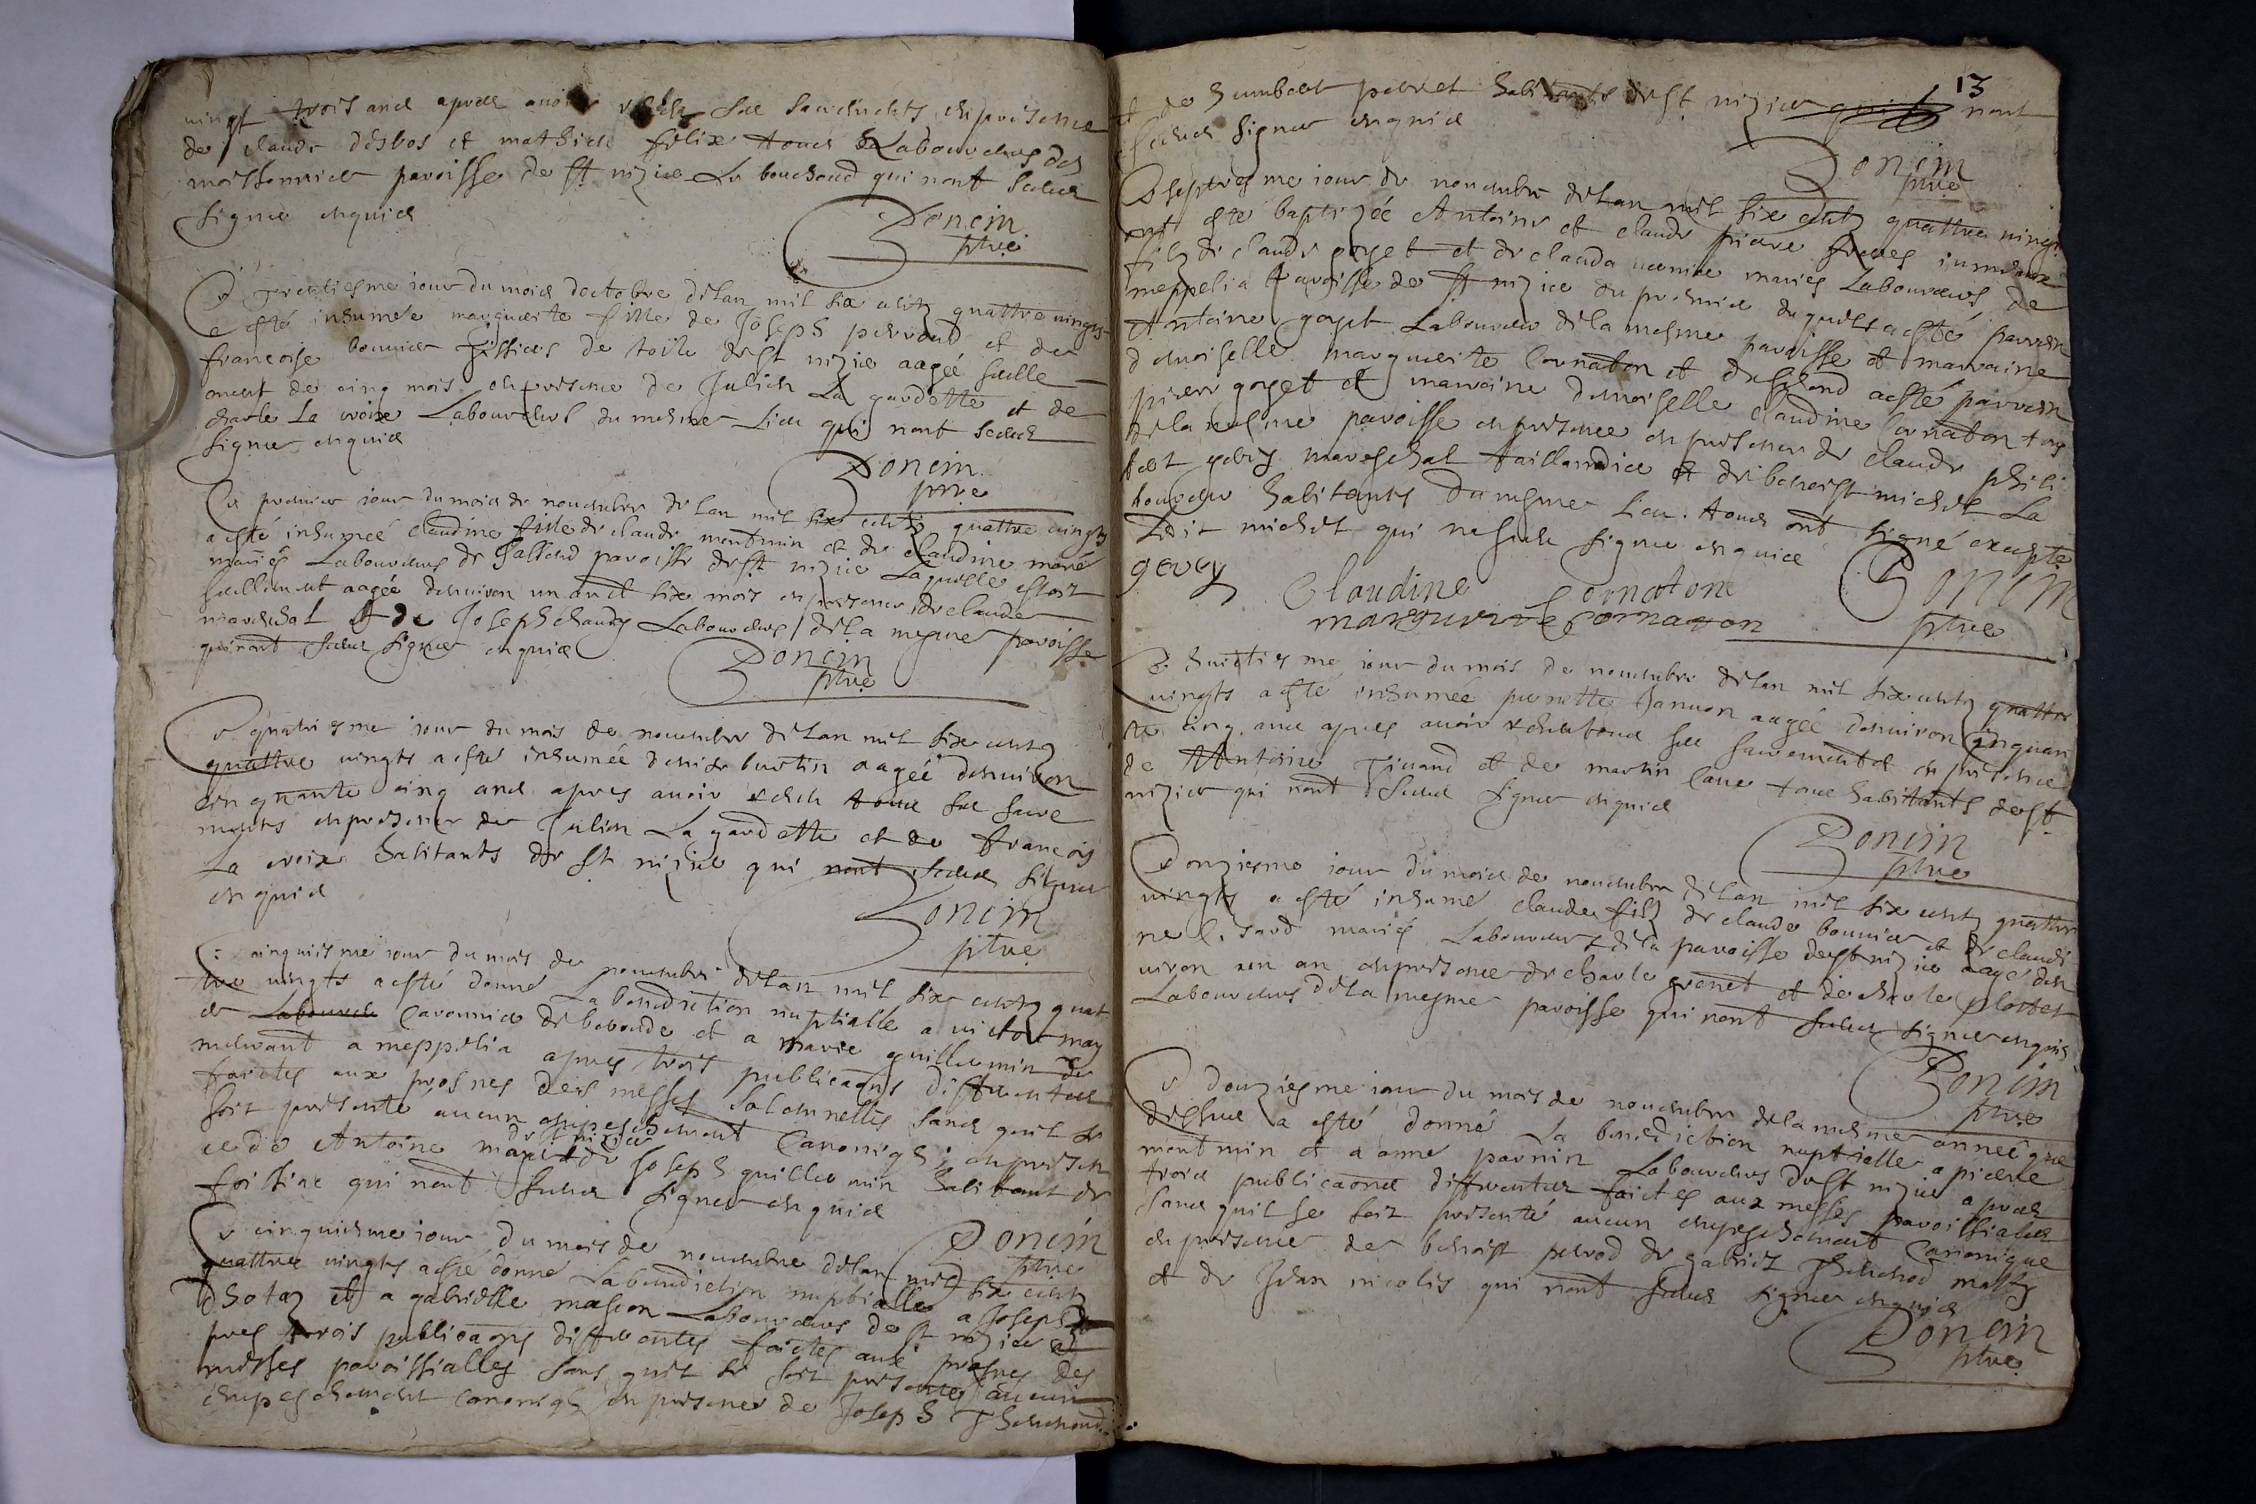 vingt trois ans apres avoir receu ses sacrements en presence
de claude desbos et mathieu felix tous Laboureurs des
moissonnier paroisse de st nizier Le bouchoud qui nont sceus
signer enquis
Poncin
ptre
Le trentiesme iour du mois doctobre de lan mil six centz quattre vingts
a esté inhumée marguerite fille de Joseph perraud et de
francoise bonnier tissiers de toile de st nizier aagée seulle
ment de cinq mois en presence de Julien La gardette et de
charle La croix Laboureurs du mesme Lieu qui nont sceus
signer enquis
Poncin
ptre
Le premier iour du mois de novembre de lan mil six centz quattre vingts
a esté inhumée claudine fille de claude montmin et de claudine moné
mariés Laboureurs de paroisse de st nizier Laquelle estoit
seullement aagée denviron un an et six mois en presence de claude
mareschal et de Joseph chaudy Laboureurs de la mesme paroisse
qui nont sceus signer enquis
Poncin
ptre
Le quatriesme iour du mois de novembre de lan mil six centz
quattre vingts a esté inhumée denise burtin aagée denviron
cinquante cinq ans apres avoir receu tous ses sacre
ments en presence de Julien La gardette et de francois
La croix habitants de st nizier qui nont sceus signer
enquis
Poncin
ptre
Le cinquiesme iour du mois de novembre de lan mil six centz quat
tre vingts a esté donné La benediction nuptialle a victor may
et Laboureur caronnier de beboude et a marie guillermin de
meurant a meppelia apres trois publicaons differentes
faictes aux prosnes des messes solemnelles sans quil se
soit presenté aucun empeschement canoniq en presen
de st nizier
ce de Antoine et de Joseph guillermin habitant de
foissiac qui nont sceus signer enquis
Poncin
ptre
Le cinquiesme iour du mois de novembre de lan mil six centz
quattre vingts a esté donné La benediction nuptialle a Joseph
dhotaz et a gabrielle mascon Laboureurs de st nizier a
pres trois publicaons differentes faictes aux prosnes des
messes paroissialles sans quil se soit presentés aucun
empeschement canoniq en presence de Joseph Thevenoud
13
et de humbert perret habitants de st nizier qui nont
sceus signer enquis
Poncin
ptre
Le septiesme iour de novembre de lan mil six centz quattre vingt
ont esté baptizée Antoine et claude pierre freres iumeaux
filz de claude goyet et de clauda vernier mariés Laboureurs de
meppelia paroisse de st nizier du premier duquels a esté parrein
Antoine goyet Laboureur de la mesme paroisse et marraine
demoiselle marguerite Cornaton et du second a esté parrein
pierre goyet et marraine demoiselle claudine Cornaton tous
de la mesme paroisse en presence en presence de claude phili
bert gevry mareschal taillandier et de benoist michel La
boureur habitants du mesme Lieu tous ont signé excepté
Ledit michel qui ne sceu signer enquis
gevry
Claudine Cornaton
marguerite Cornaton
Poncin
ptre
Le huictiesme iour du mois de novembre de lan mil six centz quattre
vingts a esté inhumée pernette Januon aagée denviron cinquan
te cinq ans apres avoir receu tous ses sacrements en presence
de Antoine Tivand et de martin Cave tous habitants de st
nizier qui nont sceus signer enquis
Poncin
ptre
Le onziesme iour du mois de novembre de lan mil six centz quattre
vingts a esté inhumé claude filz de claude bonnier et de claudi
ne mariés Laboureurs de la paroisse de st nizier aagé den
viron un an en presence de charle grenet et de charle plottet
Laboureurs de la mesme paroisse qui nont sceus signer enquis
Poncin
ptre
Le douziesme iour du mois de novembre de la mesme année que
dessus a esté donné La benediction nuptialle a pierre
montmin et a anne pannin Laboureurs de st nizier apres
trois publicaons differentes faictes aux messes paroissiales
sans quil se soit presenté aucun empeschement Canonique
en presence de benoist perrod de gabriel Thevenod
et de Jean nicolis qui nont sceus signer enquis
Poncin
ptre